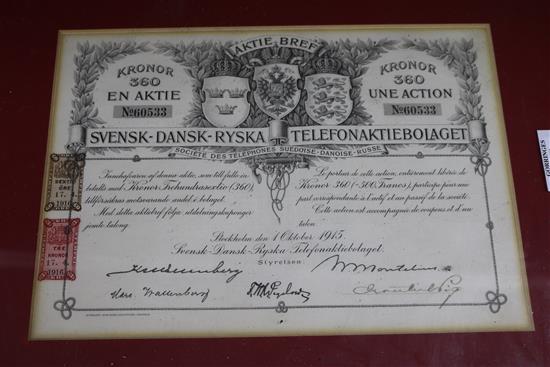 AKTIE BREF
KRONOR
360
EN AKTIE
No60533
KRONOR
360
UNE ACTION
No60533
SVENSK-DANSK-RYSKA TELEFONAKTIEBOLAGET
SOCIÉTÉ DES TÉLÉPHONES SUÉDOISE-DANOISE-RUSSE
Innehafvaren af denna aktie, som till fullo in-
betalts med Kronor Trehundrasextio (360),
tillförsäkras motsvarande andel i bolaget.
Med detta aktiebref följa utdelningskuponger
jämte talong.
Le porteur de cette action, entièrement libérée de
Kronor 360 (=500, Francs), participe pour une
part correspondante à l'actif et au passif de la société.
Cette action est accompagnée de coupons et d'un
talon.
Stockholm den 1 Oktober 1915.
Svensk-Dansk-Ryska-Telefonaktiebolaget.
Styrelsen
Marc Wallenberg
ÖRE
17. 4.
1916
TRE
KRONOR
17. 4.
1916
GORRINGES